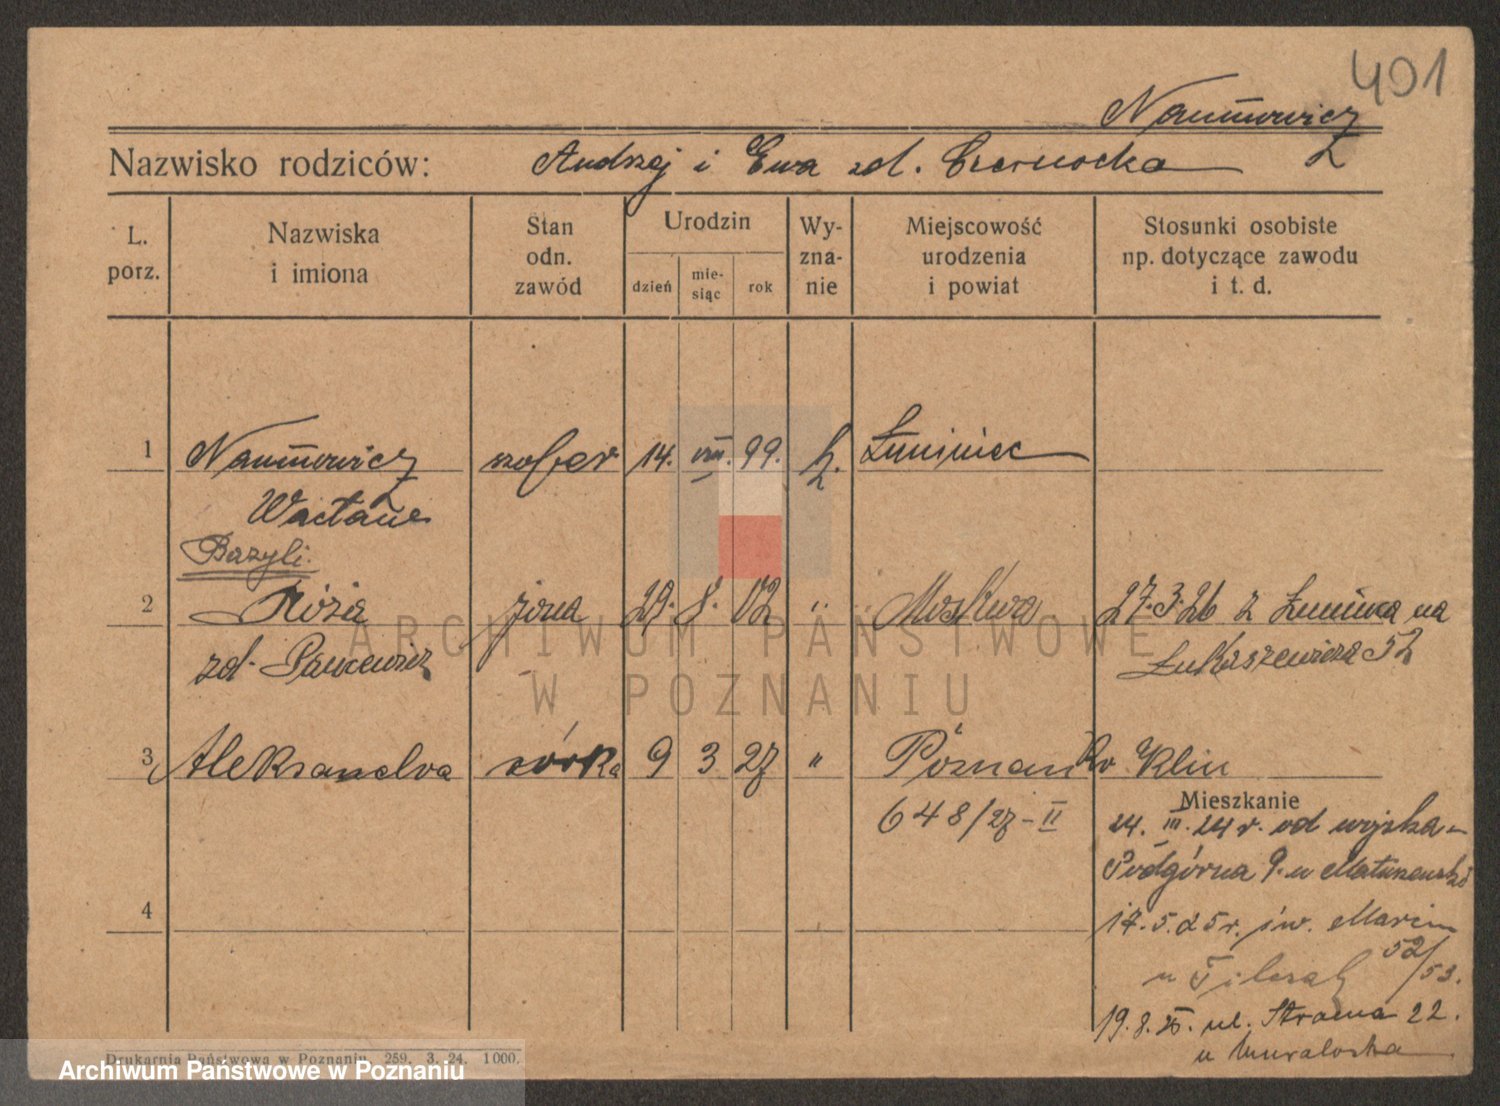 401
Naumowicz
Nazwisko rodziców: Andrzej i Ewa zd. Czernocka
L. porz.
Nazwiska i imiona
Stan odn. zawód
Urodzin
dzień
mie-siąc
rok
Wy-zna-nie
Miejscowość urodzenia i powiat
Stosunki osobiste np. dotyczące zawodu i t. d.
1 Naumowicz szofer 14. VIII. 99. Łuniniec
Wacław
Bazyli.
2 Róża żona 29. 8. 02 " Moskwa 27.3.26 z Łunińca na
zd. Łukaszewicza 52
3 Aleksandra córka 9 3 27 " Poznań Klin
Mieszkanie
648/27-II 24. III. 24 r. od wojska
Podgórna 9. u
4 17.5.25 r. św. Marcin
52/53.
u
19.8. ul. Stroma 22.
u
ARCHIWUM PAŃSTWOWE
W POZNANIU
Drukarnia Państwowa w Poznaniu. 259. 3. 24. 1000.
Archiwum Państwowe w Poznaniu